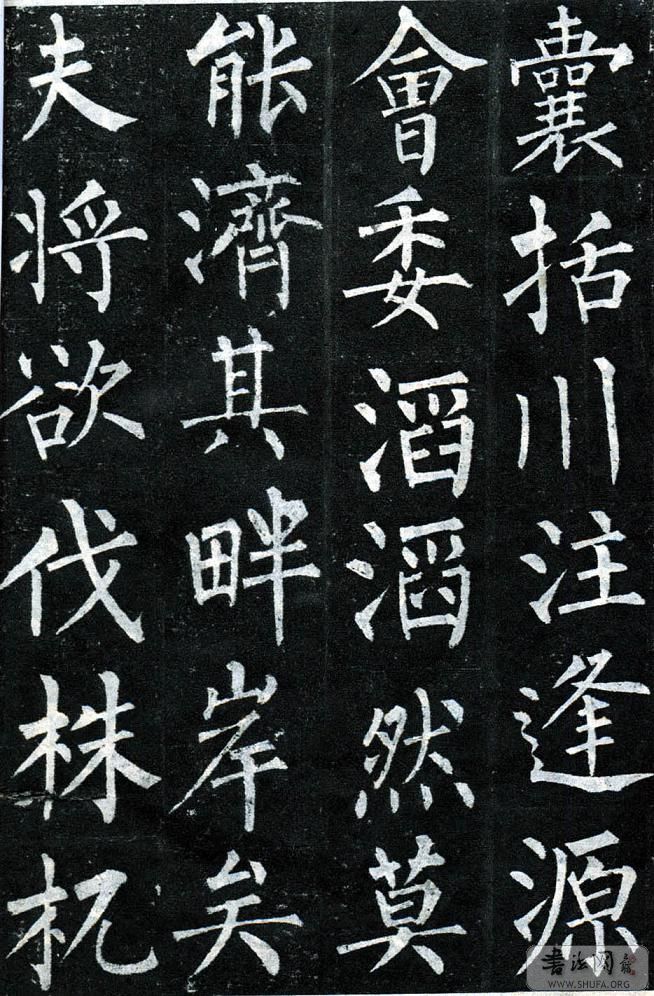 囊括川注逢源
會委滔滔然莫
能濟其畔岸矣
夫將欲伐株杌
書法网
WWW.SHUFA.ORG